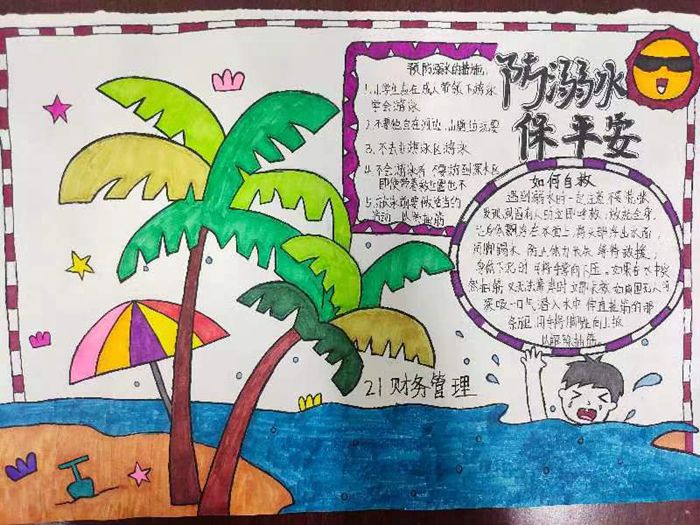 防溺水
保平安
预防溺水的措施:
1.小学生应在成人带领下游泳
学会游泳
2.不要独自在河边、山塘边玩耍
3.不去非游泳区游泳
4.不会游泳者,不要游到深水区
即使带着救生圈也不
5.游泳前要做适当的
活动,以防抽筋
如何自救
遇到溺水时一定注意不要慌张
发现周围有人时立即呼救,放松全身,
让身体飘浮在水面上,将头部浮出水面,
用脚踢水,防止体力丧失,等待救援,
身体下沉时,手掌向下压,如果在水中突
然抽筋,又无法靠岸时,立即求救,如周围无人,可
深吸一口气潜入水中,伸直抽筋的那
条腿,用手将脚趾向上扳
以解除抽筋
21财务管理